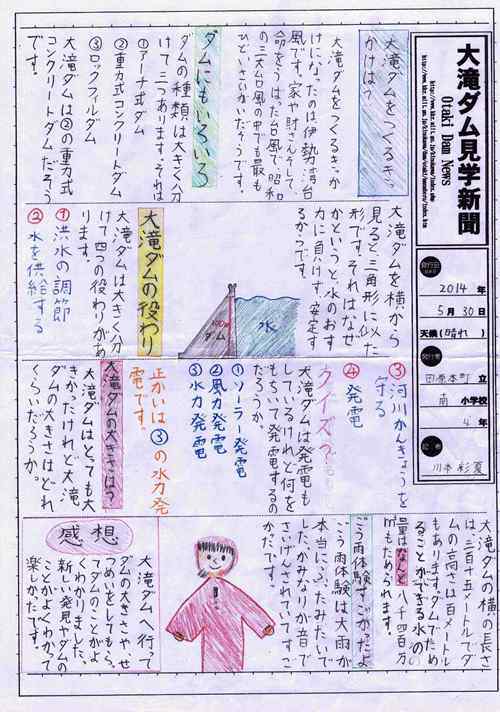 大滝ダム見学新聞
Otaki Dam News
発行日
2014年
5月30日
天候(晴れ)
発行者
田原本町立
南小学校
4年
記者
大滝ダムをつくるきっ
かけは?
大滝ダムをつくるきっか
けになったのは伊勢湾台
風です。家や財さんそして、
命をうばった台風で昭和
の三大台風の中でも最も
ひどいさいがいだそうです。
ダムにもいろいろ
ダムの種類は大きく分
けて三つあります。それは
①アーチ式ダム
②重力式コンクリートダム
③ロックフィルダム
大滝ダムは②の重力式
コンクリートダムだそう
です。
大滝ダムを横から
見ると三角形に似た
形です。それはなぜ
かというと、水のおす
力に負けず、安定す
るからです。
水
ダム
大滝ダムの役わり
大滝ダムは大きく分
けて四つの役わりがあ
ります。
①洪水の調節
②水を供給する
③河川かんきょうを
守る
④発電
クイズ?
大滝ダムは発電も
しているけれど何を
もちいて発電するの
だろうか。
①ソーラー発電
②風力発電
③水力発電
正かいは③の水力発
電です。
大滝ダムの大きさは?
大滝ダムはとっても大
きかったけれど大滝
ダムの大きさはどれ
くらいだろうか。
大滝ダムの横の長さ
は三百十五メートルでダ
ムの高さは百メートル
もあります。ダムでため
ることができる水の
量はなんと八千四百万
㎥もためられます。
ごう雨体験すごかったよ
ごう雨体験は大雨が
本当にふったみたいで
した。かみなりが音で
さいげんされていてすご
かったです。
感想
大滝ダムへ行って
ダムの大きさやせ
つめいをしてもらっ
てダムのことがよ
くわかりました。
新しい発見やダムの
ことがよくわかって
楽しかったです。